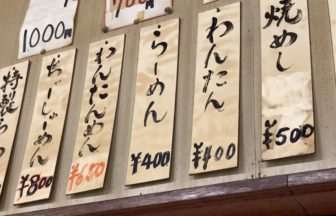 焼めし
¥500
わんたん
¥400
らーめん
¥400
わんたんめん
¥650
ちゃーしゅーめん
¥800
特製
1000円